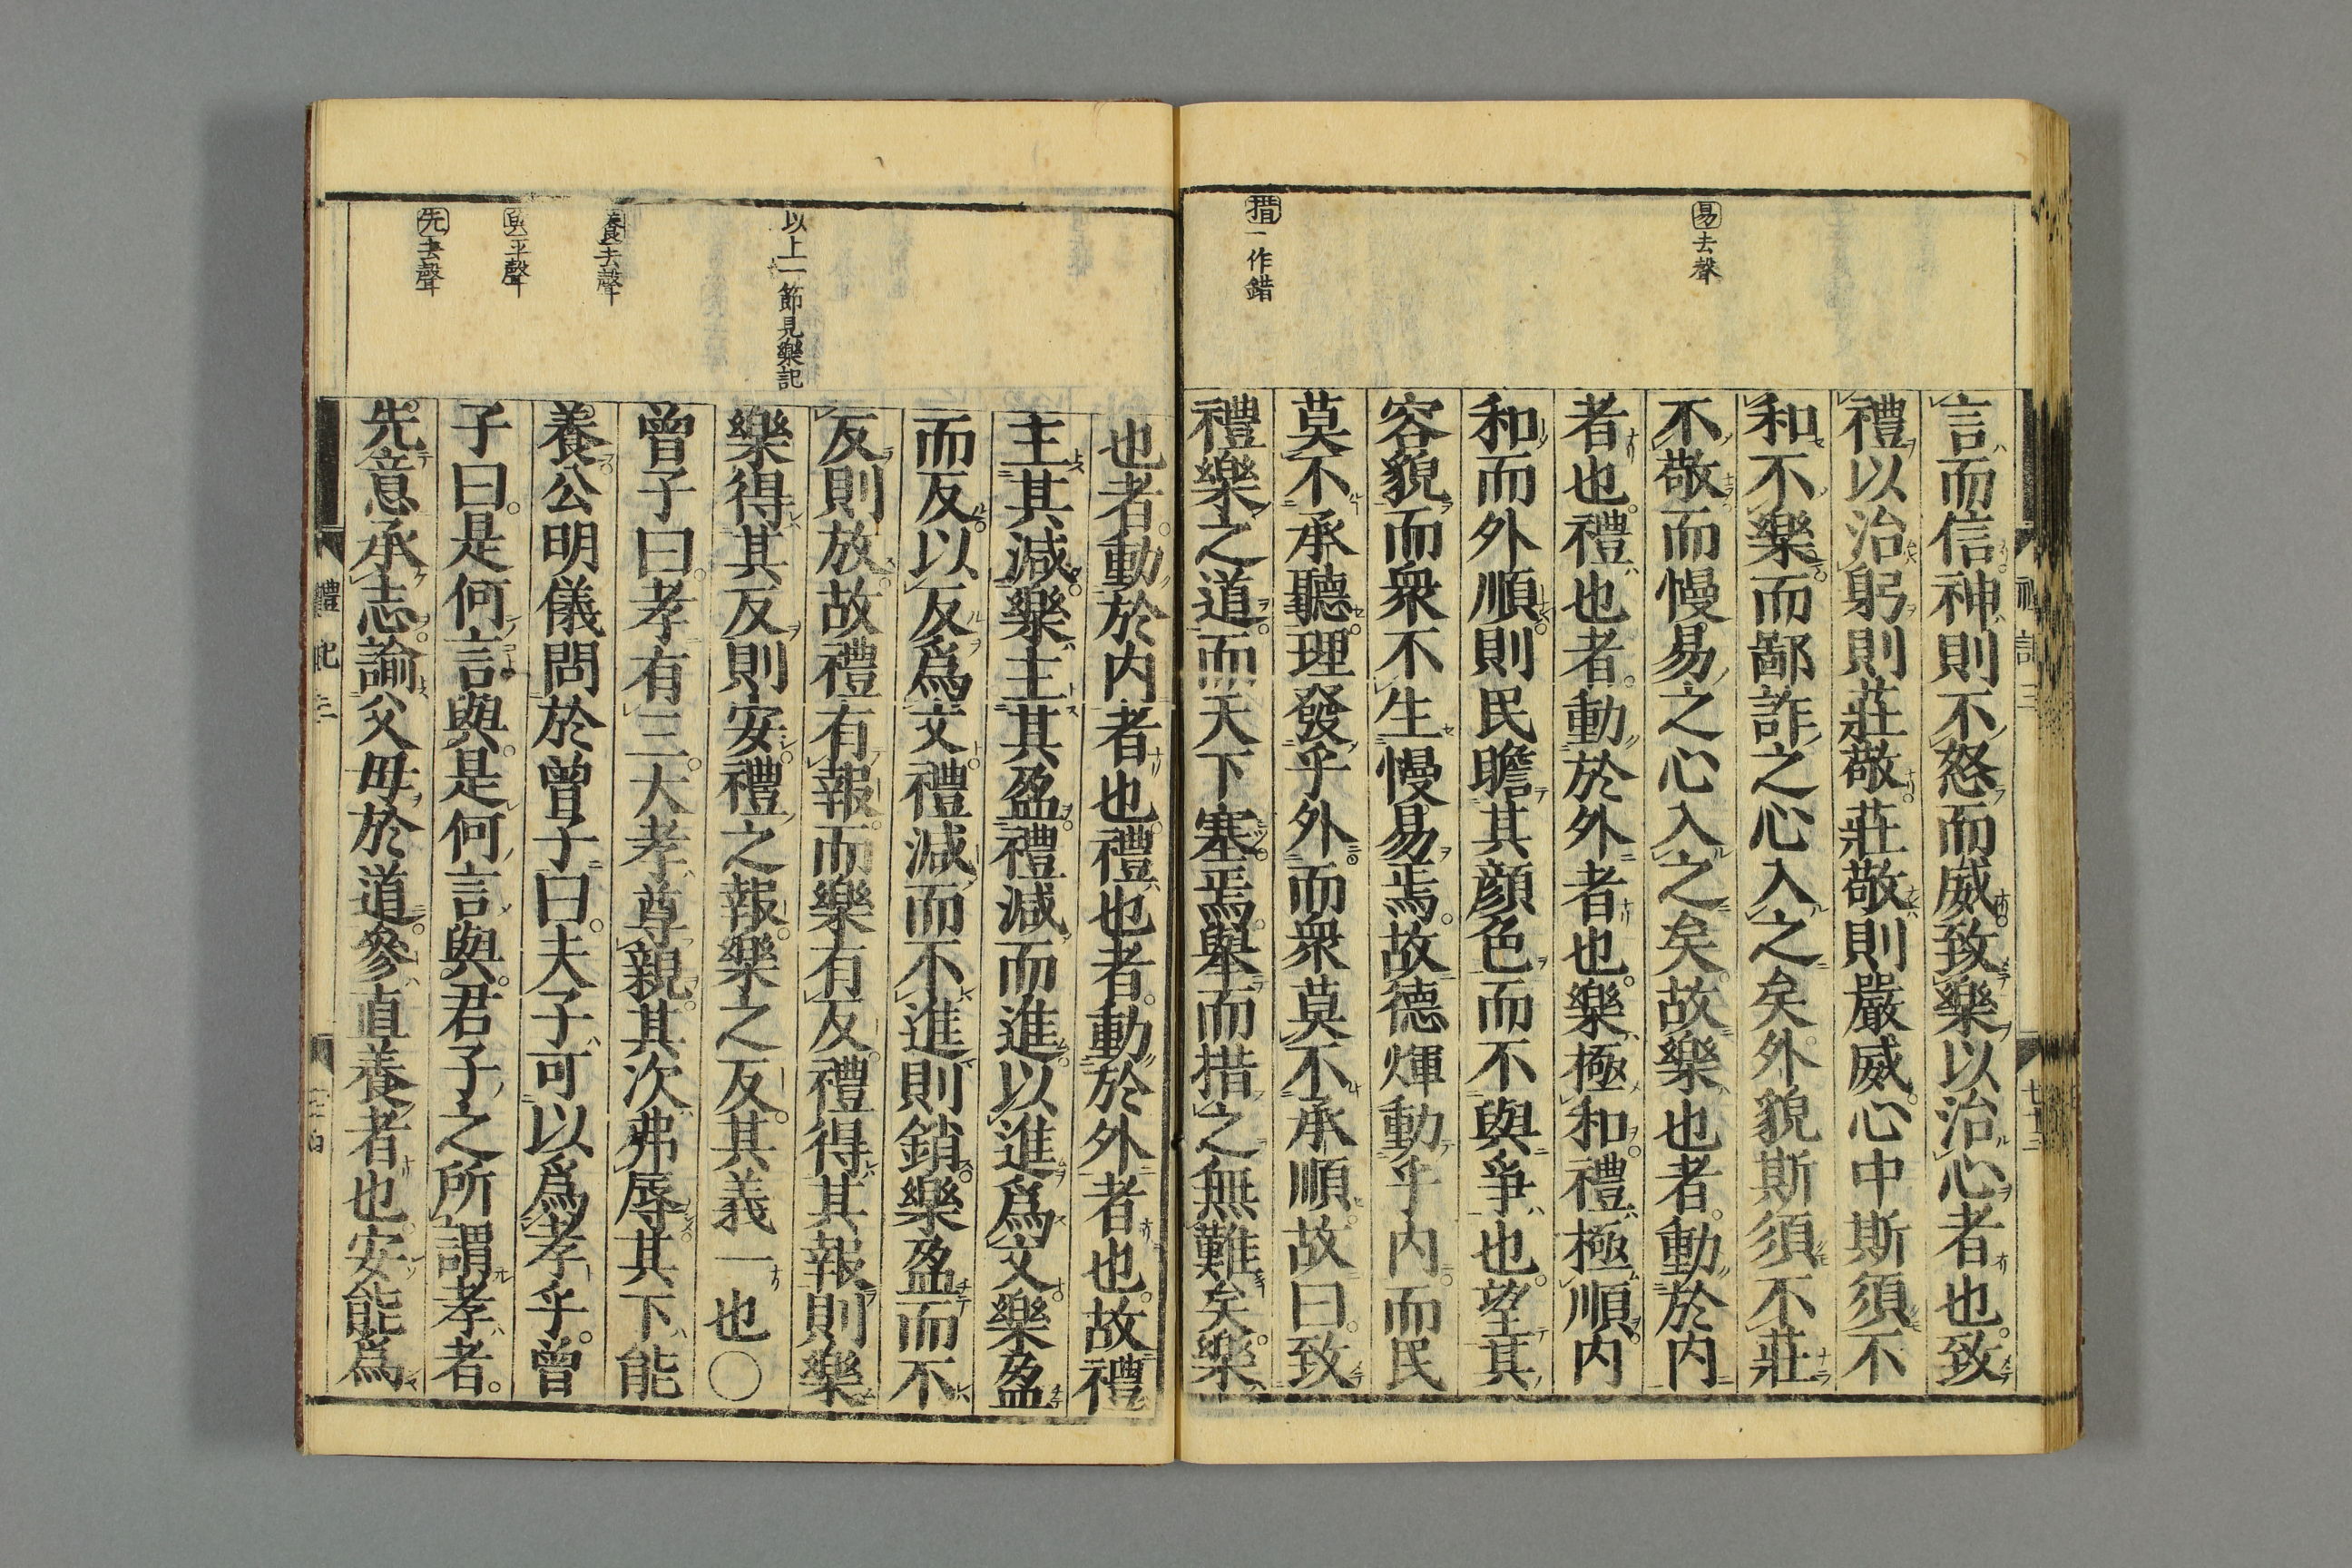 易去聲
措一作錯
言而信神則不怒而威致樂以治心者也致
禮以治躬則莊敬莊敬則嚴威心中斯須不
和不樂而鄙詐之心入之矣外貌斯須不莊
不敬而慢易之心入之矣故樂也者動於内
者也禮也者動於外者也樂極和禮極順内
和而外順則民瞻其顔色而不與爭也望其
容貌而衆不生慢易焉故德煇動乎内而民
莫不承聽理發乎外而衆莫不承順故曰致
禮樂之道而天下塞焉舉而措之無難矣樂
以上一節見樂記
養去聲
與平聲
先去聲
也者動於内者也禮也者動於外者也故禮
主其減樂主其盈禮減而進以進爲文樂盈
而反以反爲文禮減而不進則銷樂盈而不
反則放故禮有報而樂有反禮得其報則樂
樂得其反則安禮之報樂之反其義一也〇
曾子曰孝有三大孝尊親其次弗辱其下能
養公明儀問於曾子曰夫子可以爲孝乎曾
子曰是何言與是何言與君子之所謂孝者
先意承志諭父母於道參直養者也安能爲
禮記三